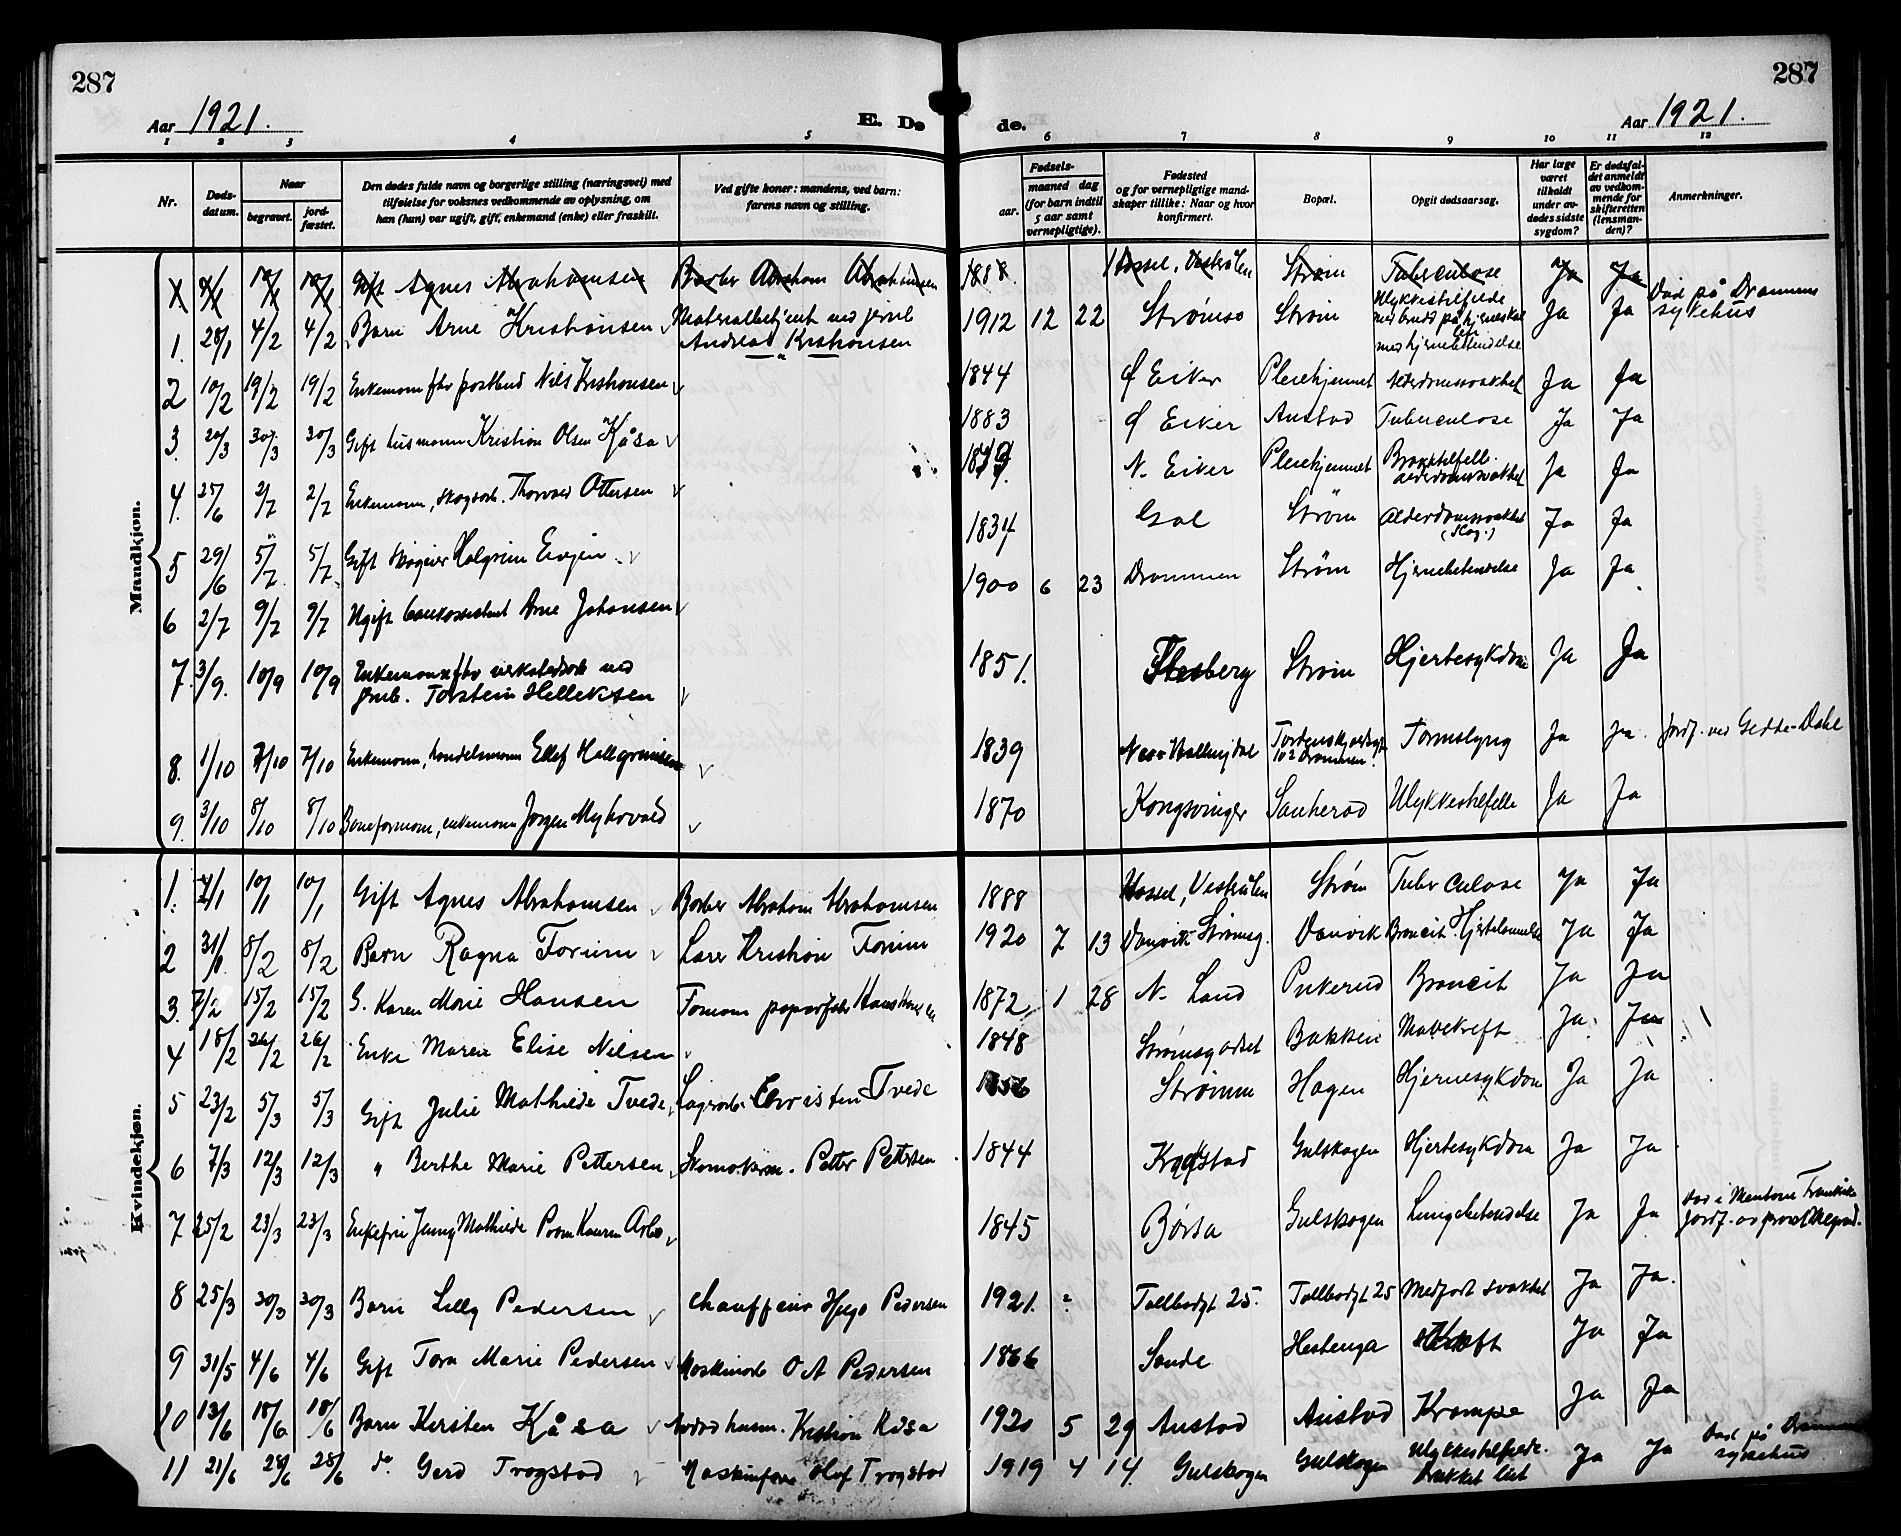 287
287
Aar 1921.
E. Dø
de.
Aar 1921.
1 2 3 4 5 6 7 8 9 10 11 12
Nr.
Døds-datum.
Naar
begravet.
jord-fæstet.
Den dødes fulde navn og borgerlige stilling (næringsvei) med
tilføielse for voksnes vedkommende av oplysning, om
han (hun) var ugift, gift, enkemand (enke) eller fraskilt.
Ved gifte koner: mandens, ved barn:
farens navn og stilling.
Fødsels-
aar.
maaned dag
(for barn indtil
5 aar samt
vernepligtige).
Fødested
og for vernepligtige mand-
skaper tillike: Naar og hvor
konfirmert.
Bopæl.
Opgit dødsaarsag.
Har læge
været
tilkaldt
under av-
dødes sidste
sygdom?
Er dødsfal-
det anmeldt
av vedkom-
mende for
skifteretten
(lensman-
den)?
Anmerkninger.
Mandkjøn.
Gift Agnes Abrahamsen Barber Abraham Abrahamsen 1888 Hassel, Vesterålen Strøm Tuberculose Ja Ja
1. 28/1 4/2 4/2 Barn Arne Kristiansen Materialbetjent ved jernb. Andreas Kristiansen 1912 12 22 Strømsø Strøm Ulykkestilfelde med brudd på hjerneskal med hjernebetendelse Ja Ja Død på Drammens sykehus
2 10/2 19/2 19/2 Enkemann fhv postbud Nils Kristiansen 1844 Ø Eiker Pleiehjemmet Alderdomssvakhet Ja Ja
3. 20/3 30/3 30/3 Gift husmann Kristian Olsen Kåsa 1883 Ø Eiker Austad Tuberculose Ja Ja
4. 25/6 2/7 2/7 Enkemann, skogsarb. Thorvald Ottersen N. Eiker Pleiehjemmet alderdomssvakhet Ja Ja
5 29/6 5/7 5/7 Gift skogeier Halgrim 1834 Gol Strøm Alderdomssvakhet Ja Ja
6 2/7 9/7 9/7 Ugift bankassistent Arne Johansen 1900 6 23 Drammen Strøm Hjernebetendelse Ja Ja
7. 3/9. 10/9 10/9 Enkemann fhv verkstedarb ved jernb. Torstein Helleksen 1851. Flesberg Strøm Hjertesykdom Ja Ja
8. 1/10 7/10 7/10 Enkemann, handelsmann Ellef Hallgrimsen 1839 Nes Hallingdal Tordenskjoldsgt 102 Drammen. Tarmslyng Ja Ja. jordf. ved Dahl
9. 3/10 8/10 8/10 Baneformann, enkemann Jørgen Myhrvold 1870 Kongsvinger Sauherad Ulykkestilfelle Ja Ja
Kvindekjøn.
1. 4/1 10/1 10/1 Gift Agnes Abrahamsen Barber Abraham Abrahamsen 1888 Hassel, Vesterålen Strøm Tuberculose Ja Ja
2 31/1 8/2 8/2 Barn Ragna Forum Lars Kristian Forum 1920 7 13 Danvik Strømsg. Danvik Broncit Hjertelammelse Ja Ja
3. 7/2 15/2 15/2 G. Karen Marie Hansen Formann papirfabr Hans Hansen 1872 1 28 N. Land Pukerud Broncit Ja Ja
4 18/2 26/2 26/2 Enke Maren Elise Nilsen 1848 Strømsgodset Bakken Mavekreft Ja. Ja
5 23/2 5/3 5/3 Gift Julie Mathilde Tvede Lagerarb. Christen Tvede 1856 Strømm Hagen Hjernesykdom Ja Ja
6 7/3 12/3 12/3 " Berthe Marie Pettersen Skomakerm. Petter Pettersen 1844 Krogstad Gulskogen Hjertesykdom Ja Ja
7 25/2 23/3 23/3 Enkefru Jenny Mathilde Arbo 1845 Børsa Gulskogen Lungebetendelse Ja Ja Død i Mentone Frankrike
8 25/3 30/3 30/3 Barn Lilly Pedersen Chauffeur Hugo Pedersen 1921. Tollbodgt 25. Tollbodgt 25 Medfødt svakhet Ja Ja.
9 31/5 4/6 4/6 Gift Tora Marie Pedersen Maskinarb O A Pedersen 1866 Sande Hestenga Kreft Ja Ja
10 13/6 18/6 18/6 Barn Kirsten Kåsa husm. Kristian Kåsa 1920 5 29 Austad Austad Krampe Ja Ja
11 21/6 28/6 28/6 do Gerd Trogstad Olaf Trogstad 1919 4 14. Gulskogen Gulskogen Ulykkestilfelde. Drukket lut Ja Ja Død på Drammens sykehus